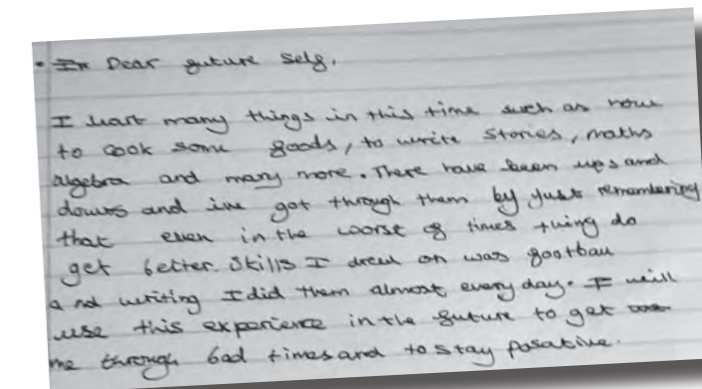 • In Dear future self,
I leart many things in this time such as how
to cook some foods, to write stories, maths
algebra and many more. There have been ups and
downs and ive got through them by just remembering
that even in the worst of times thing do
get better. Skills I drew on was football
and writing I did them almost every day. I will
use this experience in the future to get
me through bad times and to stay posative.